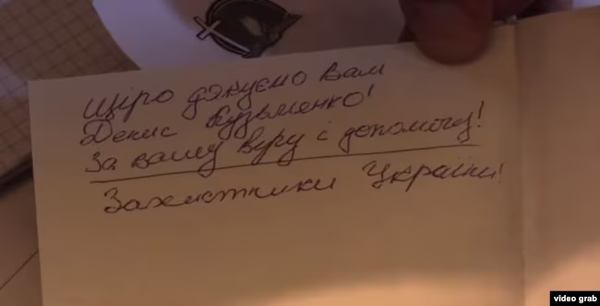 Щіро дякуємо вам
Денис Кузьменко!
За вашу віру і допомогу!
Захистники України!
video grab